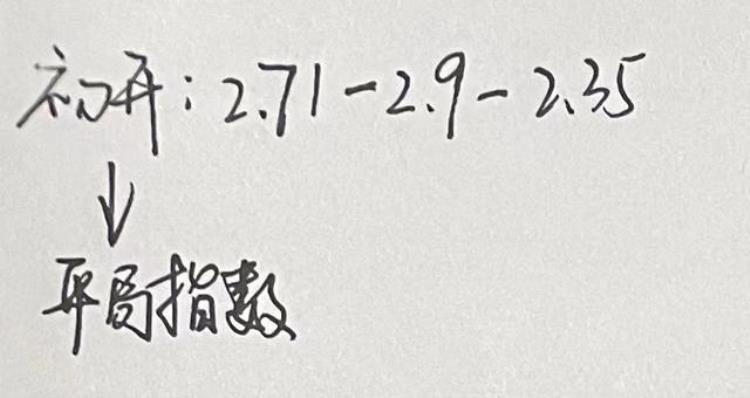 初开:2.71-2.9-2.35
↓
平局指数